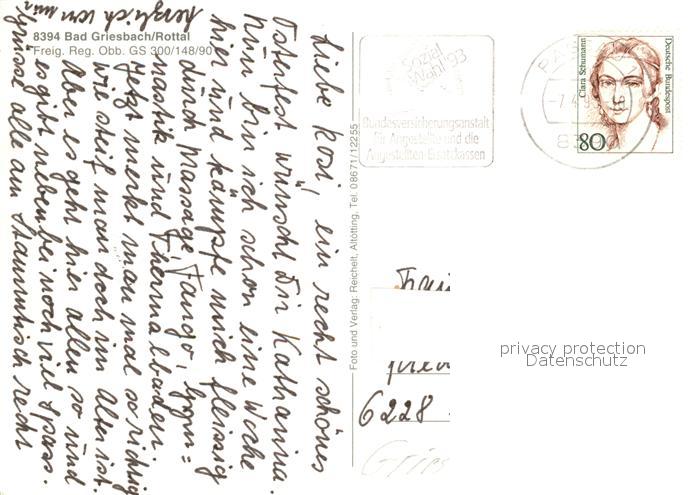 8394 Bad Griesbach/Rottal
Freig. Reg. Obb. GS 300/148/90
Liebe Rosi, ein recht schönes
Osterfest wünscht Dir Katharina.
Nun bin ich schon eine Woche
hier und kämpfe mich fleissig
durch Massage, Fango, Gym=
nastik und Thermalbaden.
Jetzt merkt man mal so richtig
wie steif man doch im Alter ist.
Aber es geht hier allen so und
es gibt nebenbei noch viel Spass.
Grüsse alle am Stammtisch recht
herzlich von mir
Foto und Verlag: Reichelt, Altötting, Tel. 08671/12255
Sozial
Wahl '93
Bundesversicherungsanstalt
für Angestellte und die
Angestellten-Ersatzkassen
Clara Schumann
Deutsche Bundespost
80
6228
privacy protection
Datenschutz